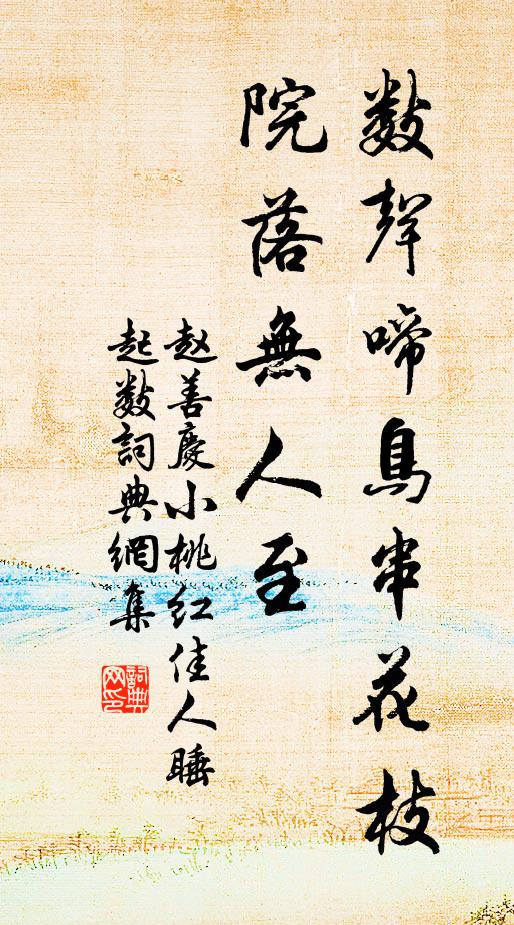 数聲啼鳥串花枝
院落無人至
赵善慶小桃红佳人睡
起数詞典網集
詞典
网印